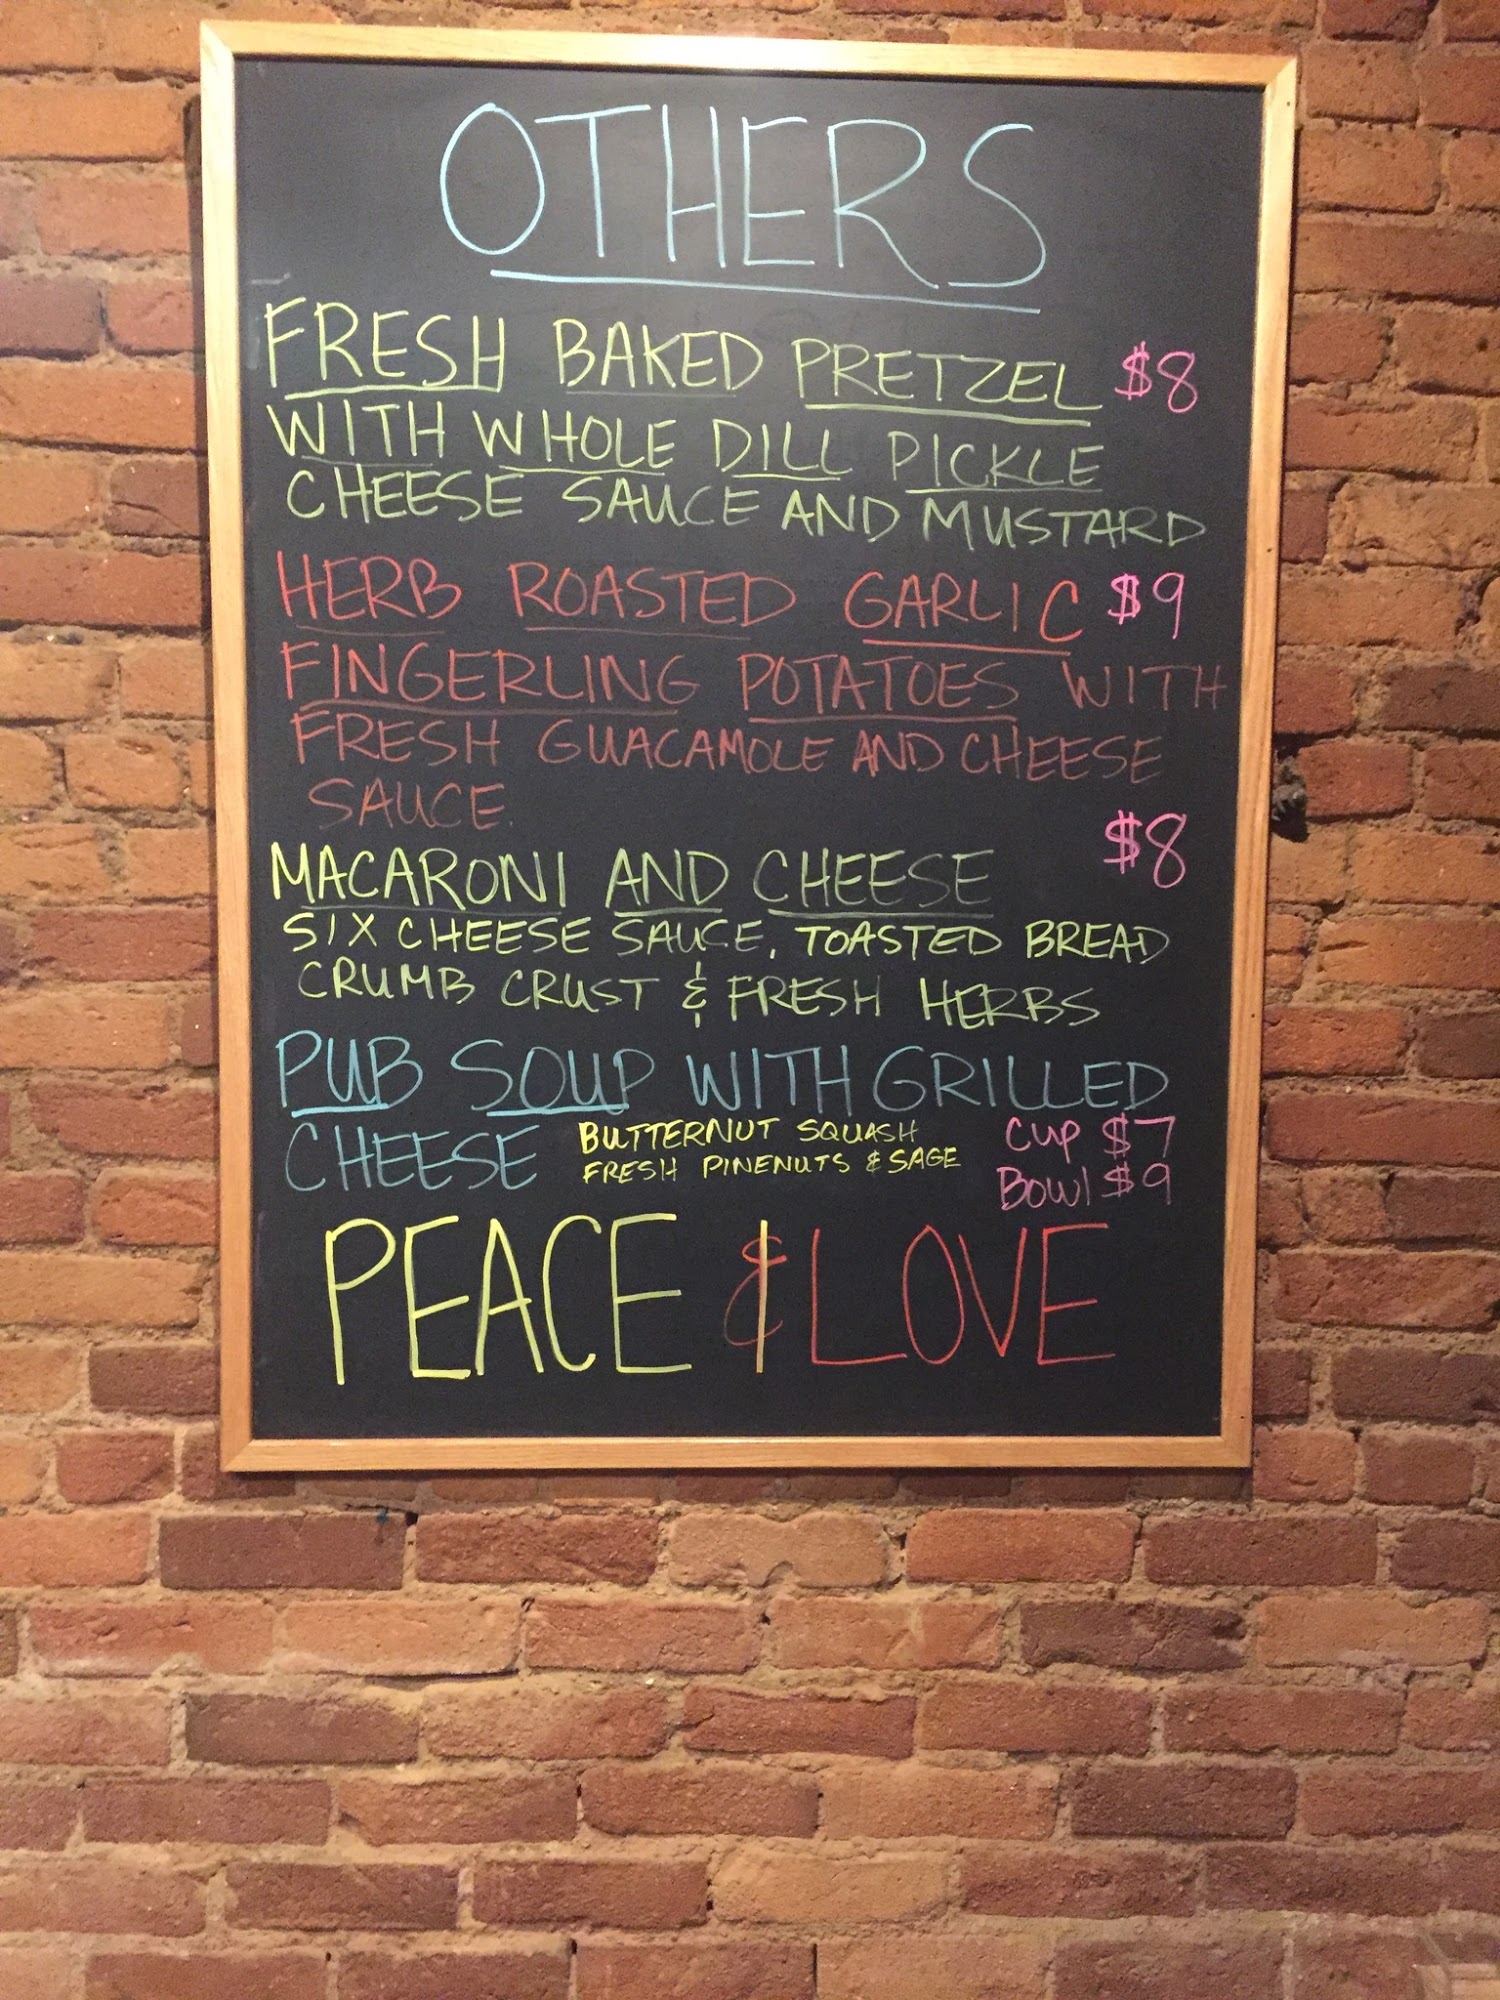 OTHERS
FRESH BAKED PRETZEL $8
WITH WHOLE DILL PICKLE
CHEESE SAUCE AND MUSTARD
HERB ROASTED GARLIC $9
FINGERLING POTATOES WITH
FRESH GUACAMOLE AND CHEESE
SAUCE.
MACARONI AND CHEESE $8
SIX CHEESE SAUCE, TOASTED BREAD
CRUMB CRUST & FRESH HERBS
PUB SOUP WITH GRILLED
CHEESE
BUTTERNUT SQUASH
FRESH PINENUTS & SAGE
Cup $7
Bowl $9
PEACE & LOVE